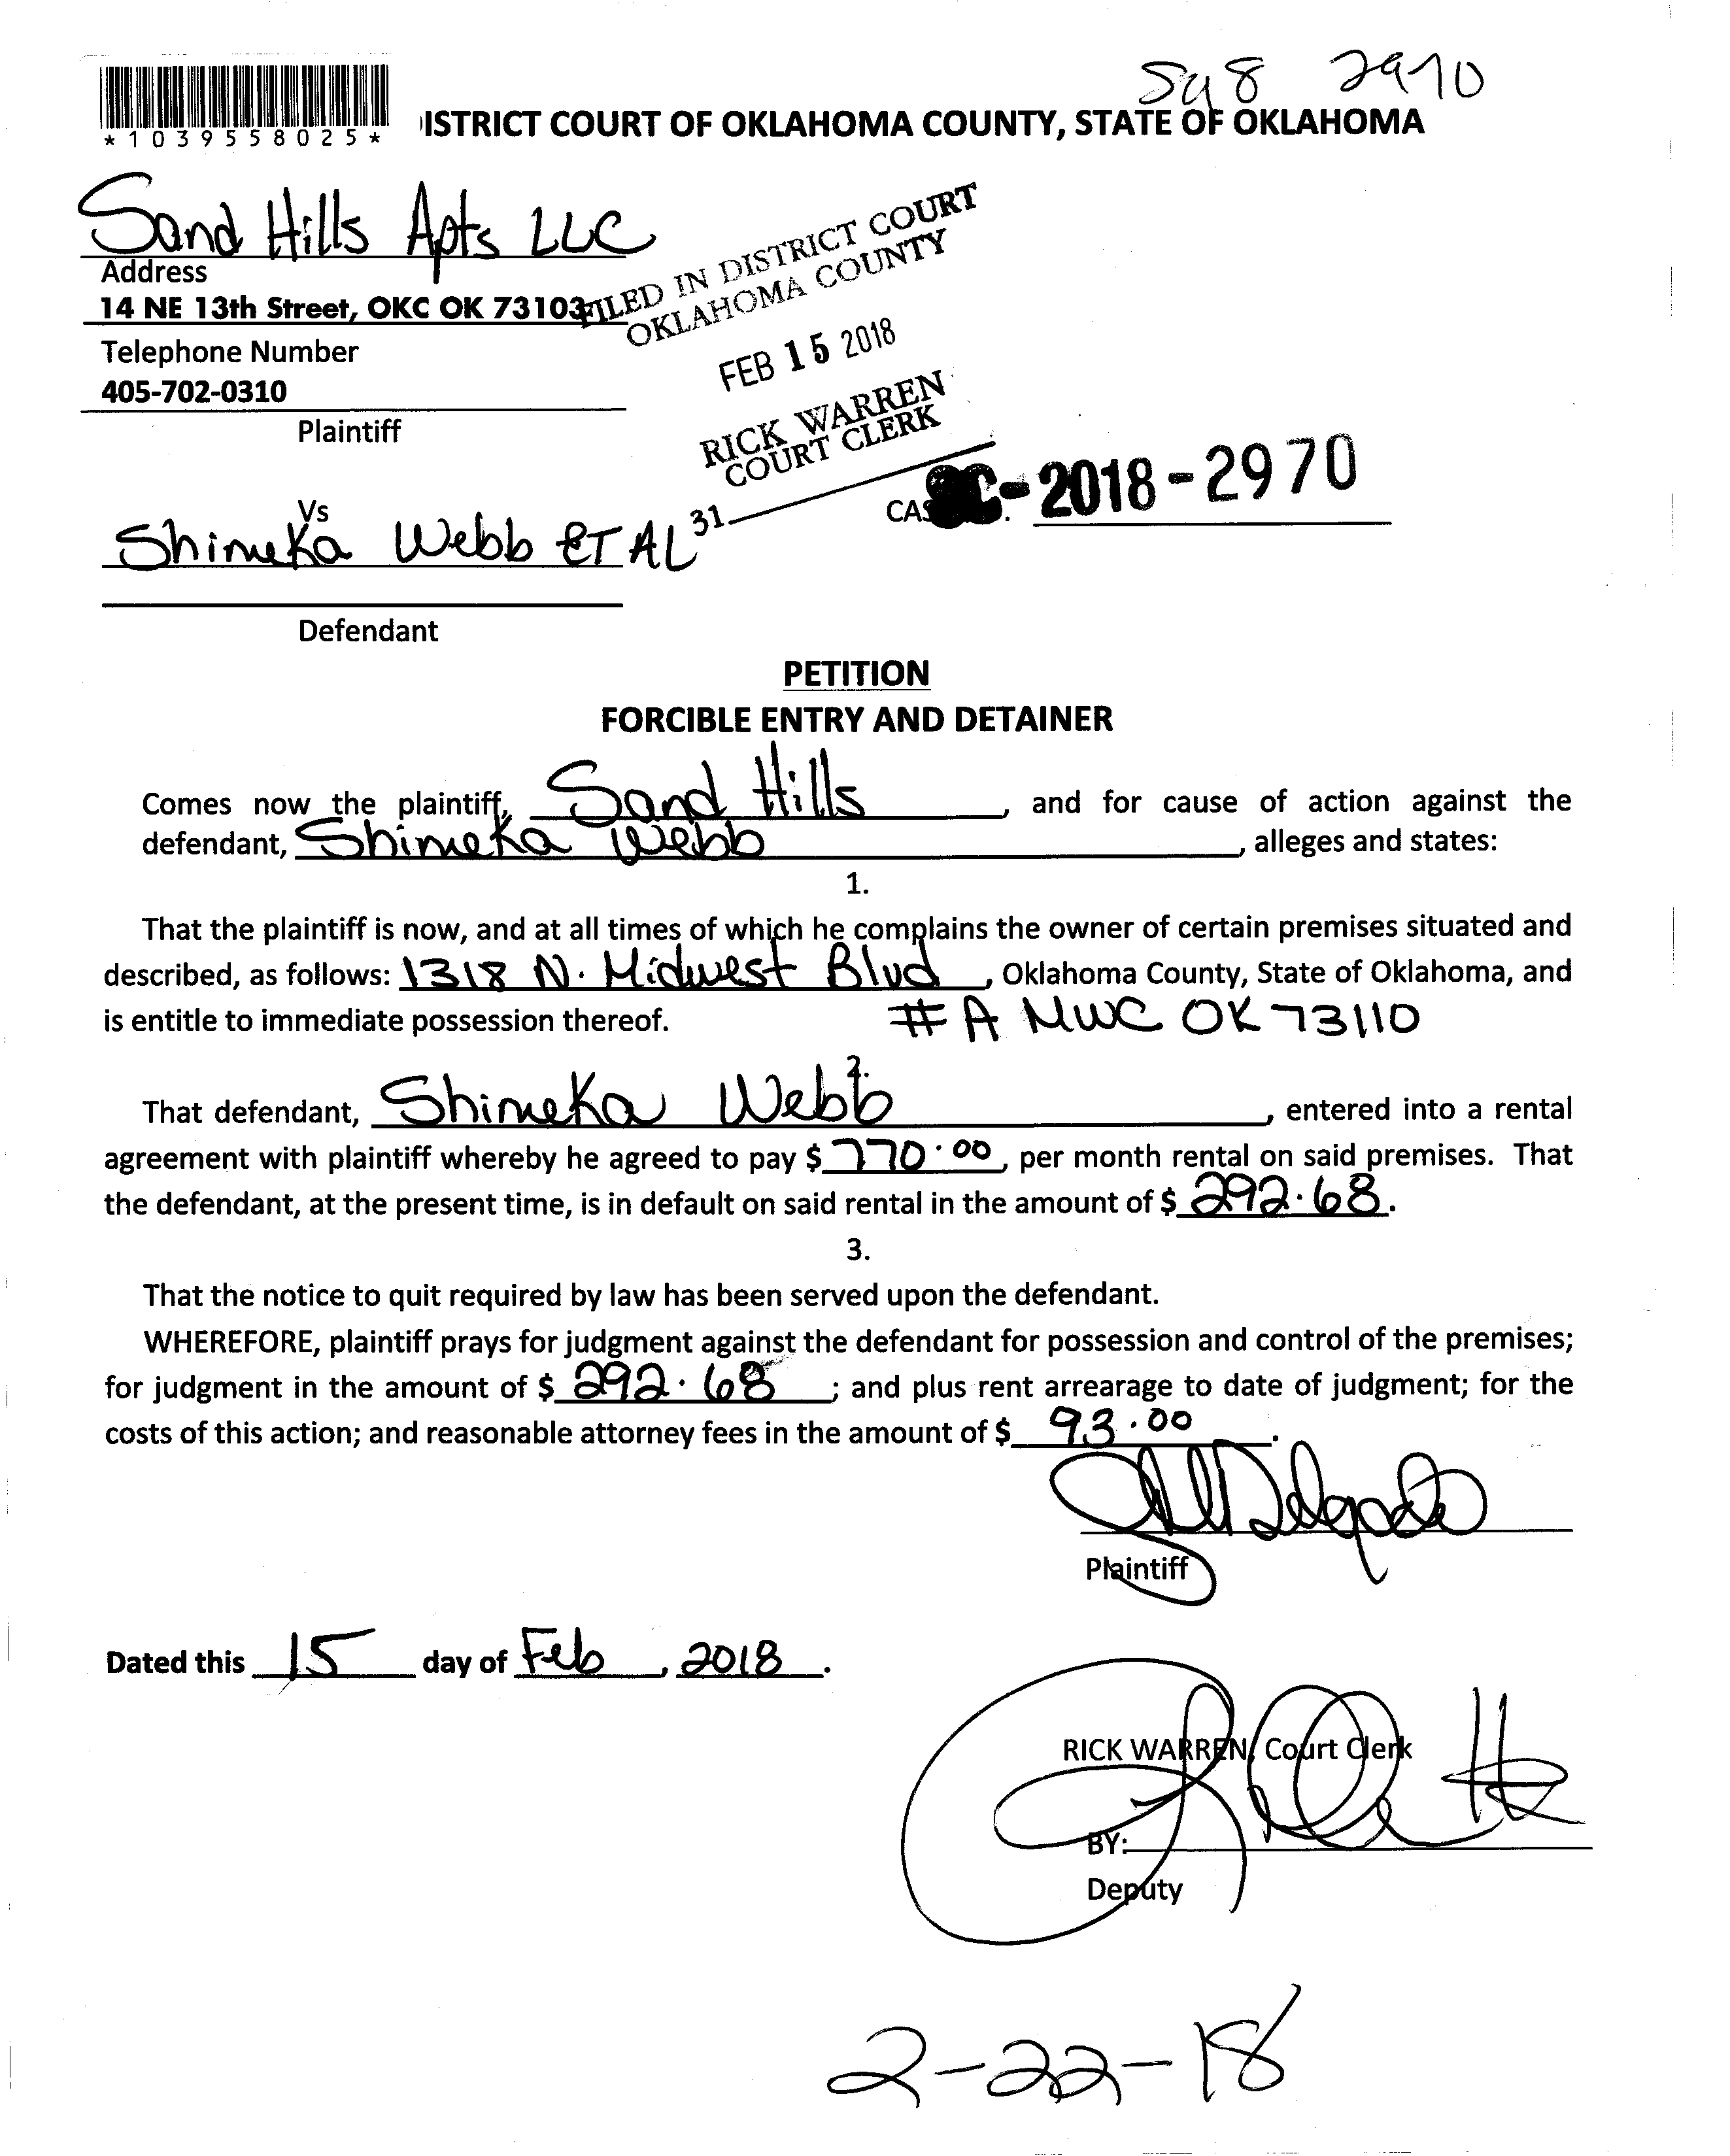 2970
*1039558025*
ISTRICT COURT OF OKLAHOMA COUNTY, STATE OF OKLAHOMA
Sand Hills Apts LLC
Address
14 NE 13th Street, OKC OK 73103
Telephone Number
405-702-0310
Plaintiff
FILED IN DISTRICT COURT
OKLAHOMA COUNTY
FEB 15 2018
RICK WARREN
COURT CLERK
31
CAS C-2018-2970
Vs
Shimeka Webb ET AL
Defendant
PETITION
FORCIBLE ENTRY AND DETAINER
Comes now the plaintiff, Sand Hills, and for cause of action against the
defendant, Shimeka Webb, alleges and states:
1.
That the plaintiff is now, and at all times of which he complains the owner of certain premises situated and
described, as follows: 1318 N. Midwest Blvd, Oklahoma County, State of Oklahoma, and
is entitle to immediate possession thereof. #A MWC OK 73110
2.
That defendant, Shimeka Webb, entered into a rental
agreement with plaintiff whereby he agreed to pay $ 770.00, per month rental on said premises. That
the defendant, at the present time, is in default on said rental in the amount of $ 292.68.
3.
That the notice to quit required by law has been served upon the defendant.
WHEREFORE, plaintiff prays for judgment against the defendant for possession and control of the premises;
for judgment in the amount of $ 292.68; and plus rent arrearage to date of judgment; for the
costs of this action; and reasonable attorney fees in the amount of $ 93.00.
Delgado
Plaintiff
Dated this 15 day of Feb, 2018.
RICK WARREN, Court Clerk
BY:
Deputy
2-22-18